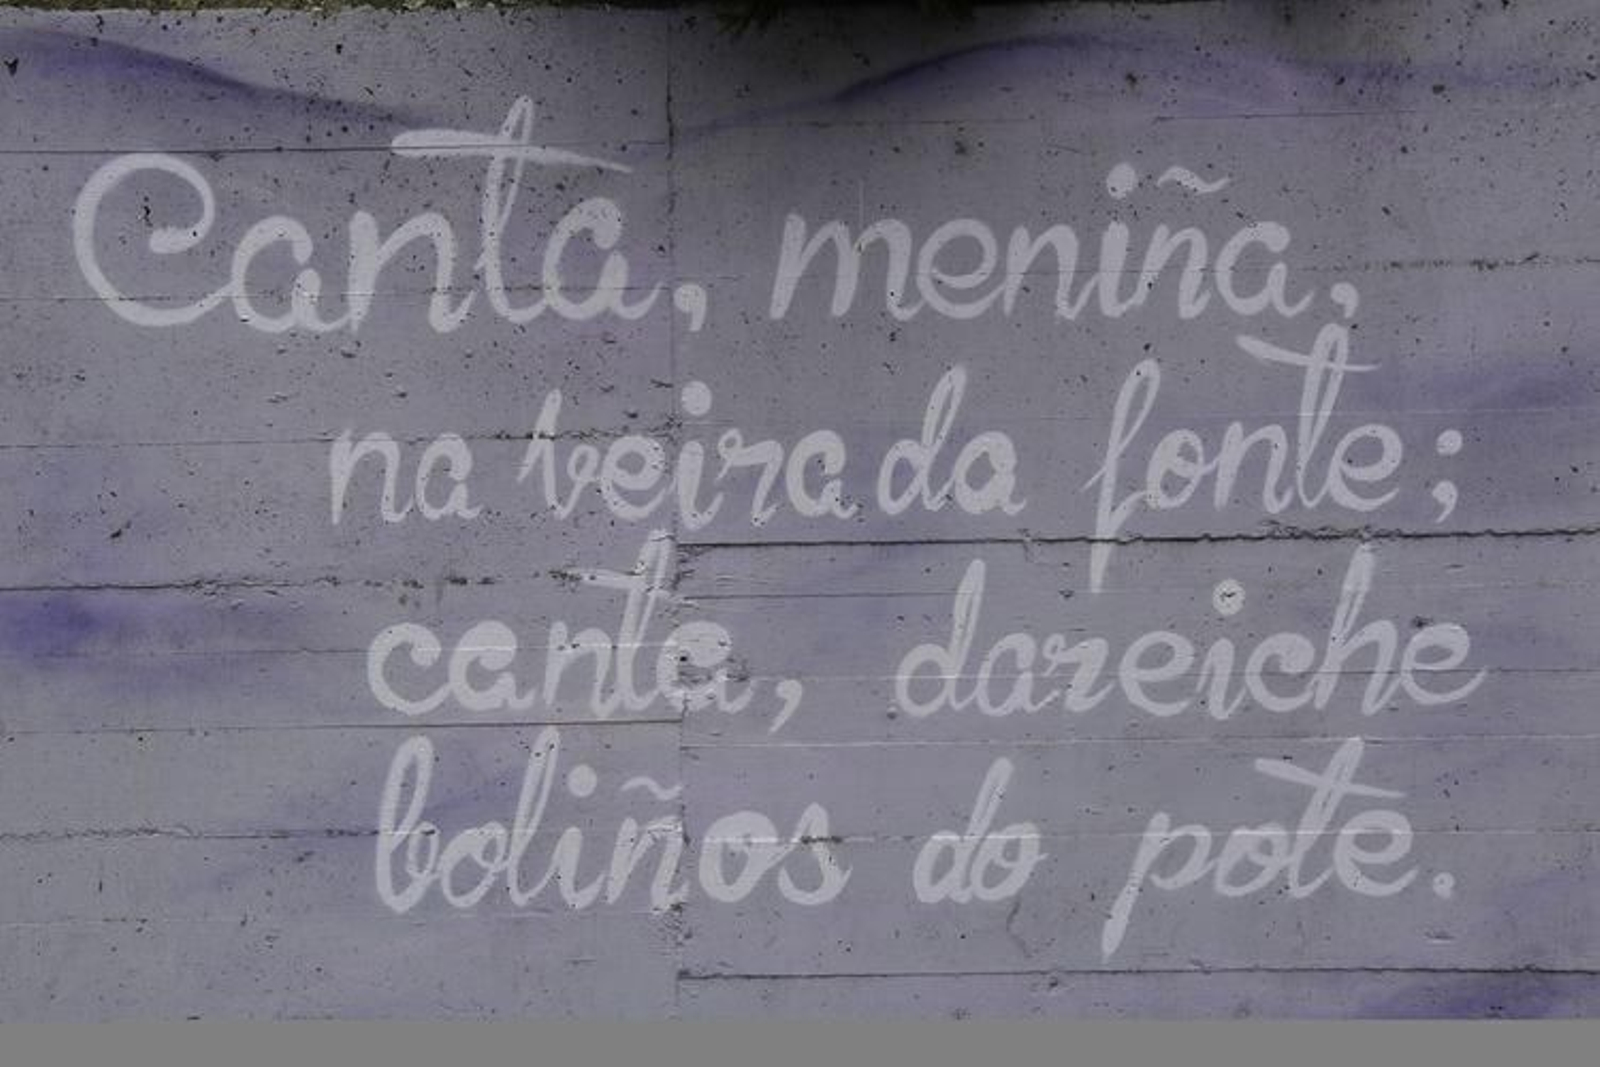 Canta, meniña,
na veira da fonte;
canta, dareiche
boliños do pote.